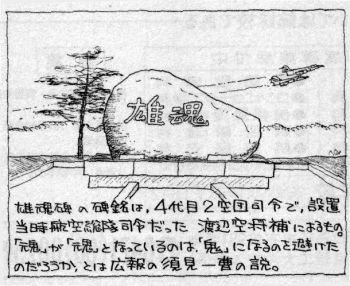 雄魂
雄魂碑の碑銘は,4代目2空団司令で,設置
当時航空総隊司令だった 渡辺空将補によるもの。
「魂」が「」となっているのは、「鬼」になるのを避けた
のだろうか、とは広報の須見一曹の説。